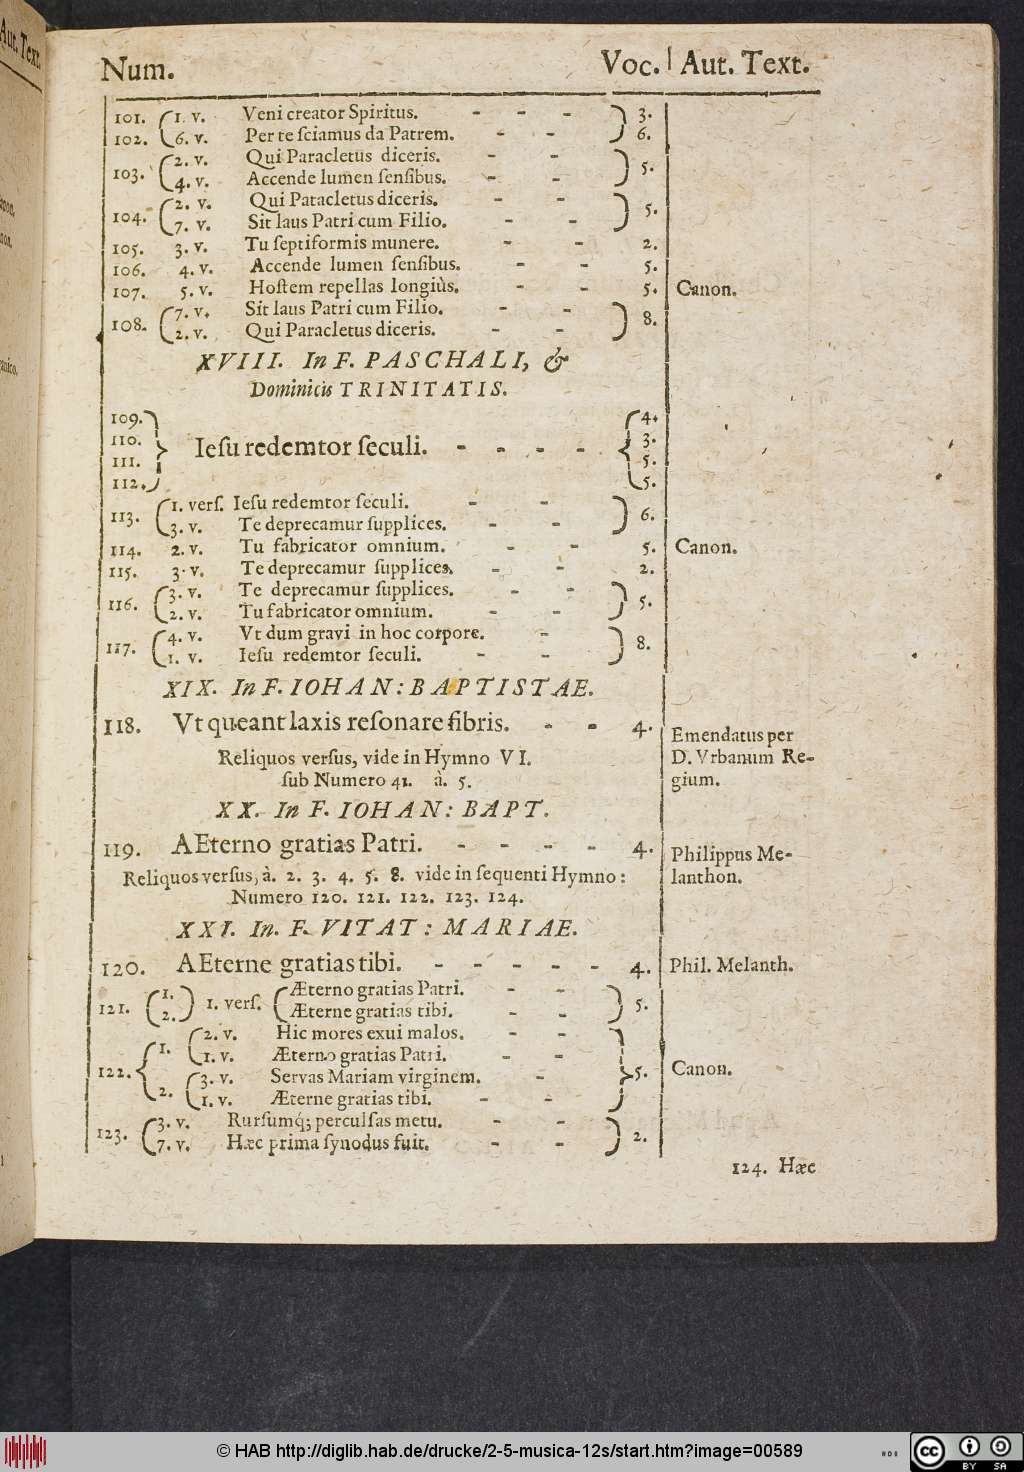 Aut. Text.
Num. Voc. Aut. Text.
101. 1. v. Veni creator Spiritus. - - - 3.
102. 6. v. Per te ſciamus da Patrem. - - 6.
103. 2. v. Qui Paracletus diceris. - - 5.
4. v. Accende lumen ſenſibus. - -
104. 2. v. Qui Patacletus diceris. - - 5.
7. v. Sit laus Patri cum Filio. - -
105. 3. v. Tu ſeptiformis munere. - - 2.
106. 4. v. Accende lumen ſenſibus. - - 5.
107. 5. v. Hoſtem repellas longiùs. - - 5. Canon.
108. 7. v. Sit laus Patri cum Filio. - - 8.
2. v. Qui Paracletus diceris. - -
XVIII. In F. PASCHALI, &
Dominicis TRINITATIS.
109. 4.
110. Ieſu redemtor ſeculi. - - - - 3.
111. 5.
112. 5.
113. 1. verſ. Ieſu redemtor ſeculi. - - 6.
3. v. Te deprecamur ſupplices. - -
114. 2. v. Tu fabricator omnium. - - 5. Canon.
115. 3. v. Te deprecamur ſupplices. - - 2.
116. 3. v. Te deprecamur ſupplices. - - 5.
2. v. Tu fabricator omnium. - -
117. 4. v. Vt dum gravi in hoc corpore. - 8.
1. v. Ieſu redemtor ſeculi. - -
XIX. In F. IOHAN: BAPTISTAE.
118. Vt queant laxis reſonare fibris. - - 4. Emendatus per
D. Vrbanum Re-
gium.
Reliquos verſus, vide in Hymno VI.
ſub Numero 41. à. 5.
XX. In F. IOHAN: BAPT.
119. AEterno gratias Patri. - - - - 4. Philippus Me-
lanthon.
Reliquos verſus, à. 2. 3. 4. 5. 8. vide in ſequenti Hymno:
Numero 120. 121. 122. 123. 124.
XXI. In. F. VITAT: MARIAE.
120. AEterne gratias tibi. - - - - - 4. Phil. Melanth.
121. 1. 1. verſ. Æterno gratias Patri. - - 5.
2. Æterne gratias tibi. - -
122. 1. 2. v. Hic mores exui malos. - - 5. Canon.
1. v. Æterno gratias Patri. - -
2. 3. v. Servas Mariam virginem. -
1. v. Æterne gratias tibi. - -
123. 3. v. Rurſumq́; perculſas metu. - - 2.
7. v. Hæc prima ſynodus fuit. - -
124. Hæc
© HAB http://diglib.hab.de/drucke/2-5-musica-12s/start.htm?image=00589
cc BY SA